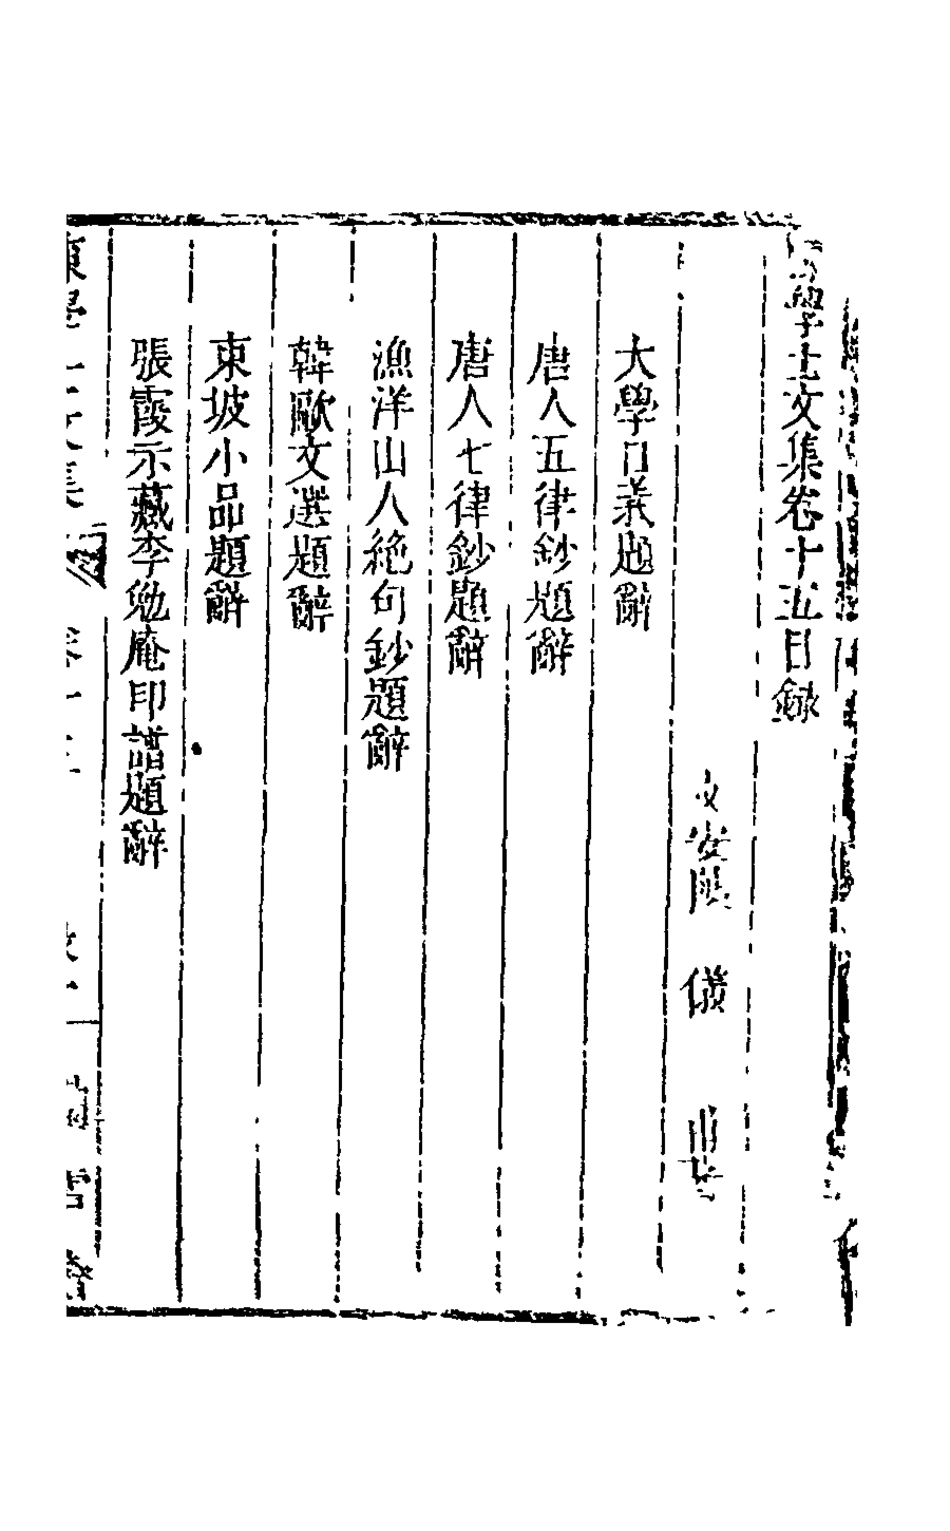 學士文集卷十五目錄
文安陳 儀
大學口義題辭
唐人五律鈔題辭
唐人七律鈔題辭
漁洋山人絶句鈔題辭
韓歐文選題辭
東坡小品題辭
張霞示藏李勉庵印譜題辭